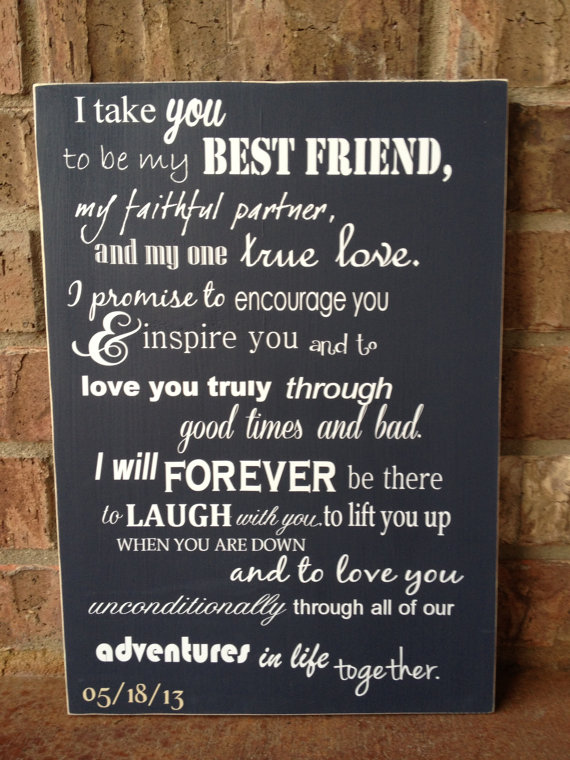 I take you
to be my BEST FRIEND,
my faithful partner,
and my one true love.
I promise to encourage you
& inspire you and to
love you truly through
good times and bad.
I will FOREVER be there
to LAUGH with you, to lift you up
WHEN YOU ARE DOWN
and to love you
unconditionally through all of our
adventures in life together.
05/18/13